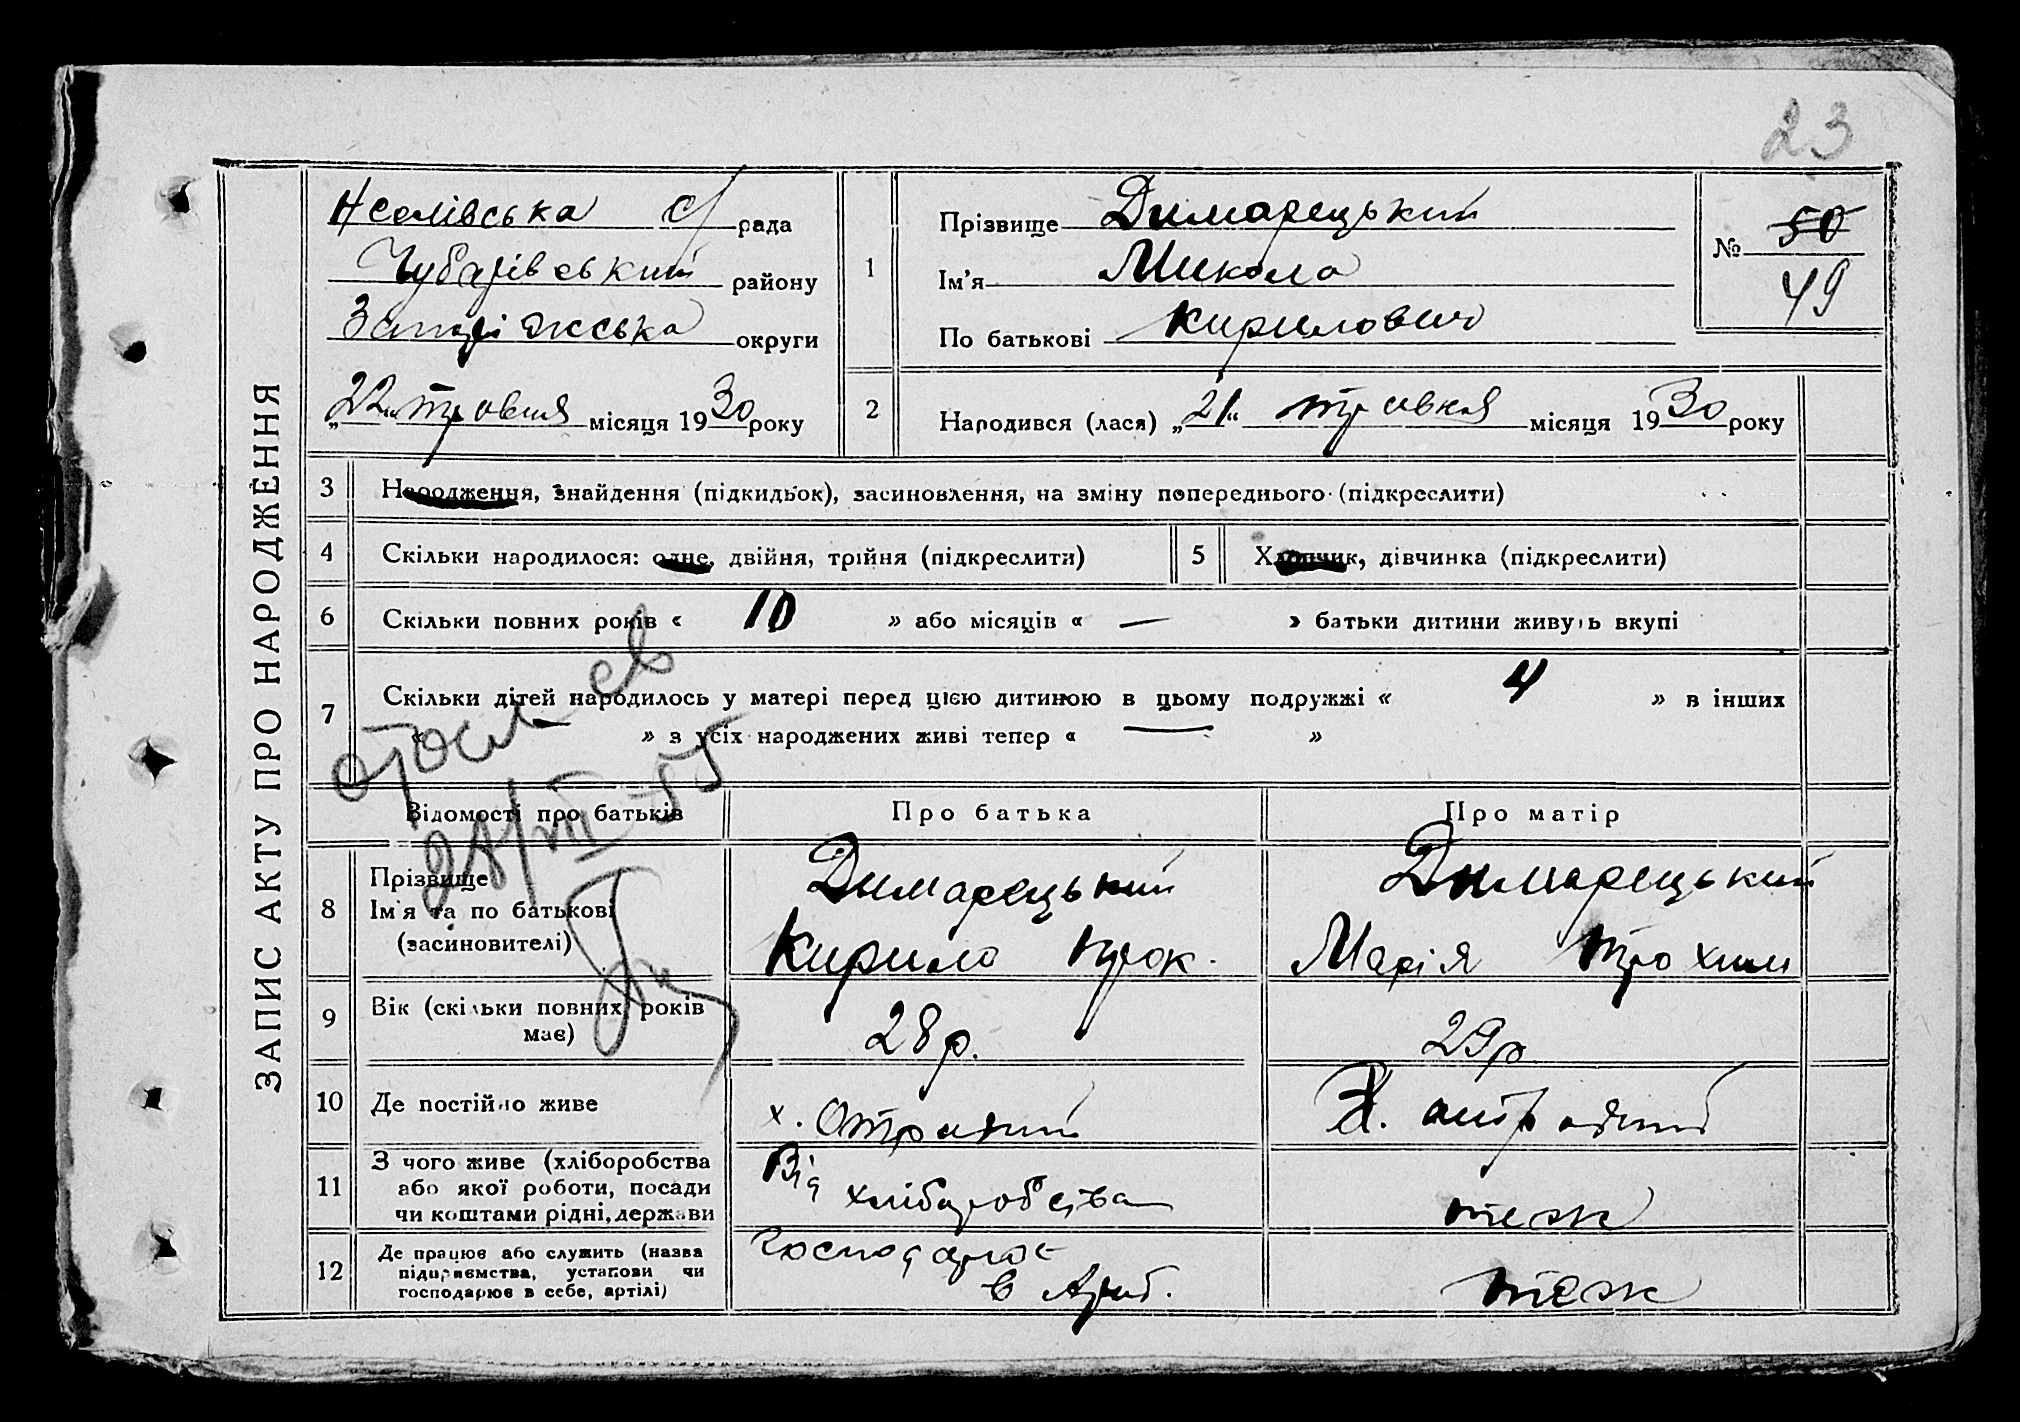 23
ЗАПИС АКТУ ПРО НАРОДЖЕННЯ
с/рада
Чубарівський району
Запоріжська округи
„22“ травня місяця 1930 року
1
Прізвище Димарецький
Ім'я Микола
По батькові Кирилович
№ 50
49
2
Народився (лася) „21“ травня місяця 1930 року
3
Народження, знайдення (підкидьок), засиновлення, на зміну попереднього (підкреслити)
4
Скільки народилося: одне, двійня, трійня (підкреслити)
5
Хлопчик, дівчинка (підкреслити)
6
Скільки повних років « 10 » або місяців « — » батьки дитини живуть вкупі
7
Скільки дітей народилось у матері перед цією дитиною в цьому подружжі « 4 » в інших
« — » з усіх народжених живі тепер « — »
Відомості про батьків
Про батька
Про матір
8
Прізвище
Ім'я та по батькові
(засиновителі)
Димарецький
Кирило Прок.
Димарецький
Марія Трохим
9
Вік (скільки повних років
має)
28 р.
29 р
10
Де постійно живе
х. Отрадний
Х. Отрадний
11
З чого живе (хліборобства
або якої роботи, посади
чи коштами рідні, держави
Від
хліборобства
теж
12
Де працює або служить (назва
підприємства, установи чи
господарює в себе, артілі)
господарює
в Арт.
теж